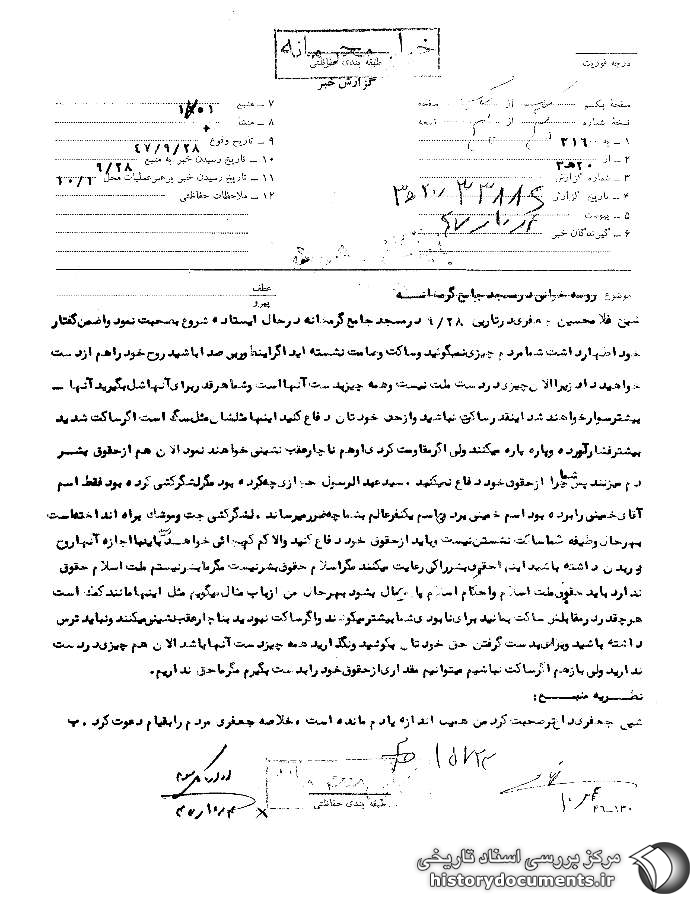 خیلی محرمانه
طبقه بندی حفاظتی
گزارش خبر
درجه فوریت
صفحه یکم از صفحه
نسخه شماره از نسخه
۱ ـ به ۳۱۶
۲ ـ از ۲۰ هـ ۳
۳ ـ شماره گزارش
۴ ـ تاریخ گزارش
۵ ـ پیوست
۶ ـ گیرندگان خبر
۷ ـ منبع
۸ ـ منشا
۹ ـ تاریخ وقوع ۴۷/۹/۲۸
۱۰ ـ تاریخ رسیدن خبر به منبع ۹/۲۸
۱۱ ـ تاریخ رسیدن خبر برهبر عملیات محل
۱۲ ـ ملاحظات حفاظتی
موضوع روضه خوانی در مسجد جامع گرمخانه
عطف
پیرو
شیخ غلامحسین جعفری در تاریخ ۹/۲۸ در مسجد جامع گرمخانه در حال ایستاده شروع بصحبت نمود و ضمن گفتار
خود اظهار داشت شما مردم چیزی نمیگوئید و ساکت و صامت نشسته اید اگر اینطور بی صدا باشید روح خود را هم از دست
خواهید داد زیرا الان چیزی در دست ملت نیست و همه چیز بدست آنها است و شما هر قدر برای آنها شل بگیرید آنها ـ
بیشتر سوار خواهند شد اینقدر ساکت نباشید و از حق خودتان دفاع کنید اینها مثلشان مثل سگ است اگر ساکت شدید
بیشتر فشار آورده و پاره پاره میکنند ولی اگر مقاومت کردی او هم ناچار عقب نشینی خواهند نمود الان هم از حقوق بشر
دم میزنند پس چرا شما از حقوق خود دفاع نمیکنید . سید عبدالرسول حجازی چه کرده بود مگر لشگرکشی کرده بود فقط اسم
آقای خمینی را برده بود اسم خمینی بردن اسم یکنفر عالم بشما چه ضرر میرساند . لشگرکشی جت و موشک براه انداخته است
بهرحال وظیفه شما ساکت نشستن نیست و باید از حقوق خود دفاع کنید والا کم کم خواهد رسید باینها اجازه آنها روح
و بدن داشته باشید اینها حقوق بشر را کی رعایت میکنند مگر اسلام حقوق بشر نیست مگر ما بشر نیستم ملت اسلام حقوق
ندارد باید حقوق ملت اسلام و احکام اسلام پایمال بشود بهرحال من از باب مثال میگویم مثل اینها مانند کمک است
هر چقدر در مقابلش ساکت بمانید برای نابودی شما بیشتر میکوشند و اگر ساکت نبودید بناچار عقب نشین میکنند و نباید ترس
داشته باشید و برای بدست گرفتن حق خودتان بکوشید و نگذارید همه چیز دست آنها باشد الان هم چیزی در دست
ندارید ولی باز هم اگر ساکت نباشیم میتوانیم مقداری از حقوق خود را بدست بگیرم مگر ما حق نداریم .
نظریه منبع :
شیخ جعفری داغ تر صحبت کرد من همین اندازه یادم مانده است . خلاصه جعفری مردم را بقیام دعوت کرد . ب
طبقه بندی حفاظتی
۴۷/۱۰/۴
۴۶ـ۱۳۰
مرکز بررسی اسناد تاریخی
historydocuments.ir